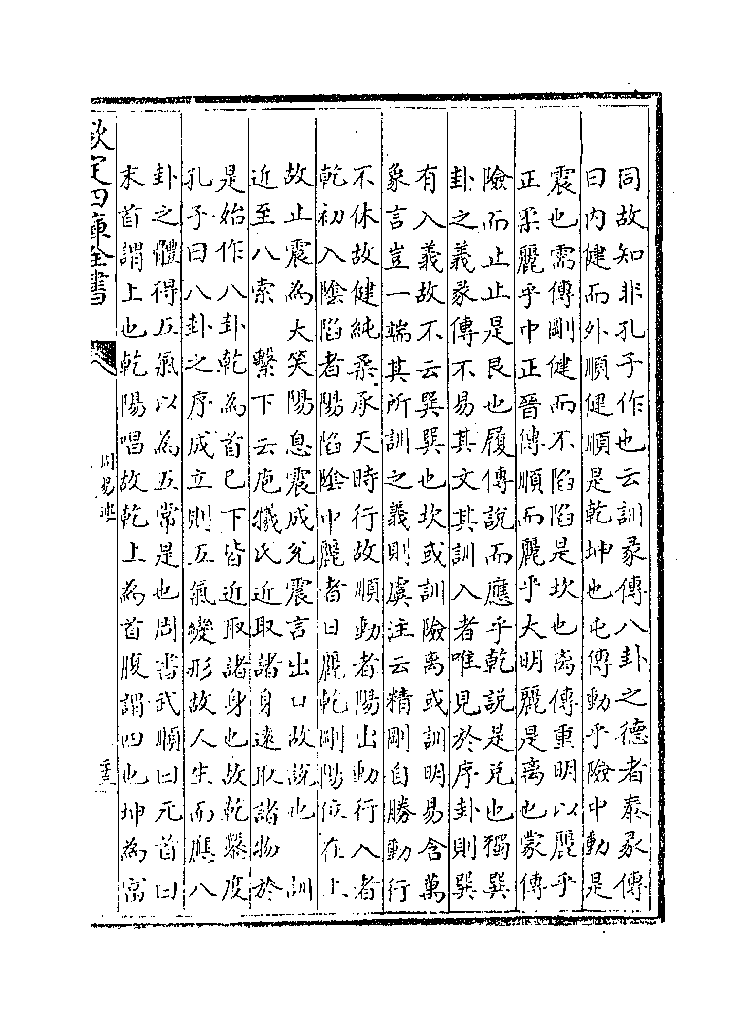 同故知非孔子作也云訓彖傳八卦之德者泰彖傳
曰内健而外順健順是乾坤也屯傳動乎險中動是
震也需傳剛健而不陷陷是坎也离傳重明以麗乎
正柔麗乎中正晉傳順而麗乎大明麗是离也蒙傳
險而止止是艮也履傳說而應乎乾說是兌也獨巽
卦之義彖傳不易其文其訓入者唯見於序卦則巽
有入義故不云巽巽也坎或訓險离或訓明易含萬
象言豈一端其所訓之義則虞注云精剛自勝動行
不休故健純柔承天時行故順動者陽出動行入者
乾初入陰陷者陽陷陰中麗者日麗乾剛陽位在上
故止震為大笑陽息震成兌震言出口故說也　訓
近至八索　繫下云庖犧氏近取諸身遠取諸物於
是始作八卦乾為首已下皆近取諸身也故乾鑿度
孔子曰八卦之序成立則五氣變形故人生而應八
卦之體得五氣以為五常是也周書武順曰元首曰
末首謂上也乾陽唱故乾上為首腹謂四也坤為富
欽定四庫全書
周易述